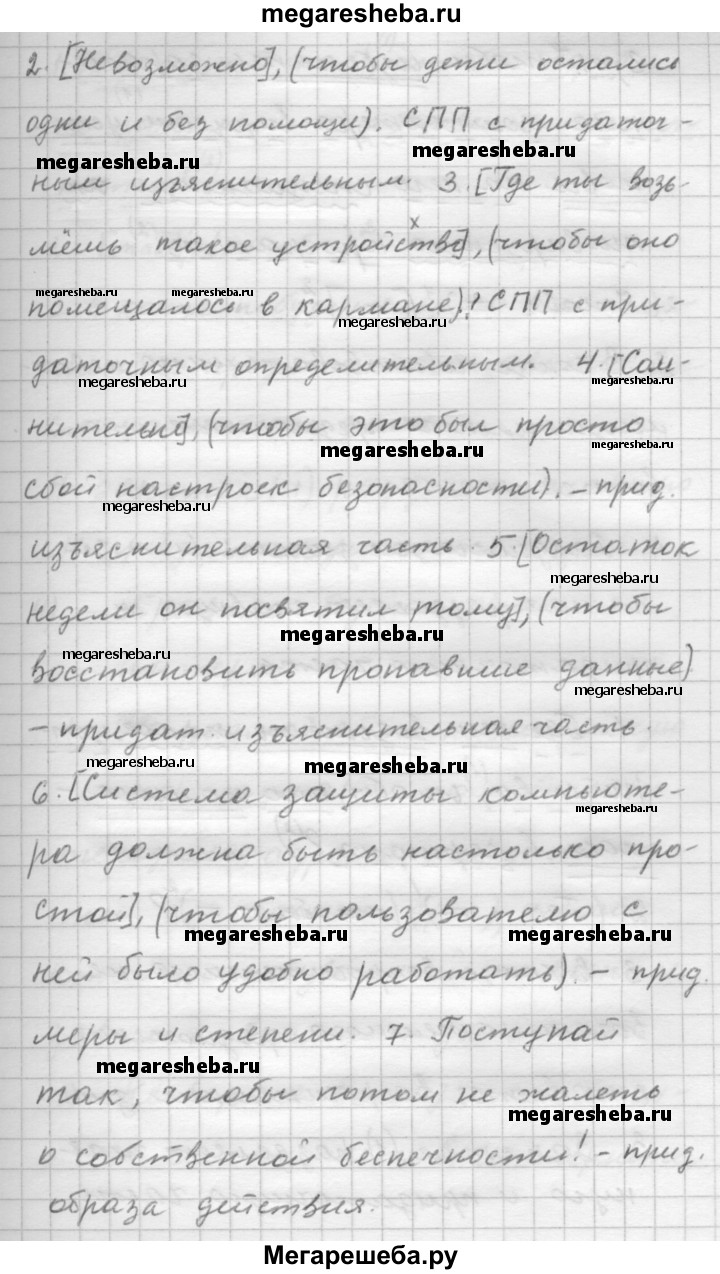 megaresheba.ru
2. [Невозможно], (чтобы дети остались
одни и без помощи). СПП с придаточ-
megaresheba.ru megaresheba.ru
ным изъяснительным. 3. [Где ты возь-
х
мёшь такое устройство], (чтобы оно
megaresheba.ru megaresheba.ru
помещалось в кармане)! СПП с при-
megaresheba.ru
даточным определительным. 4. [Сом-
megaresheba.ru
нительно], (чтобы это был просто
megaresheba.ru megaresheba.ru
сбой настроек безопасности). – прид.
megaresheba.ru
изъяснительная часть. 5. [Остаток
megaresheba.ru
недели он посвятил тому], (чтобы
megaresheba.ru megaresheba.ru
восстановить пропавшие данные)
megaresheba.ru
– придат. изъяснительная часть.
megaresheba.ru megaresheba.ru
6. [Система защиты компьюте-
megaresheba.ru
ра должна быть настолько про-
стой], (чтобы пользователю с
megaresheba.ru megaresheba.ru
ней было удобно работать). – прид.
меры и степени. 7. Поступай
megaresheba.ru
так, чтобы потом не жалеть
megaresheba.ru
о собственной беспечности! – прид.
образа действия.
Мегарешеба.ру